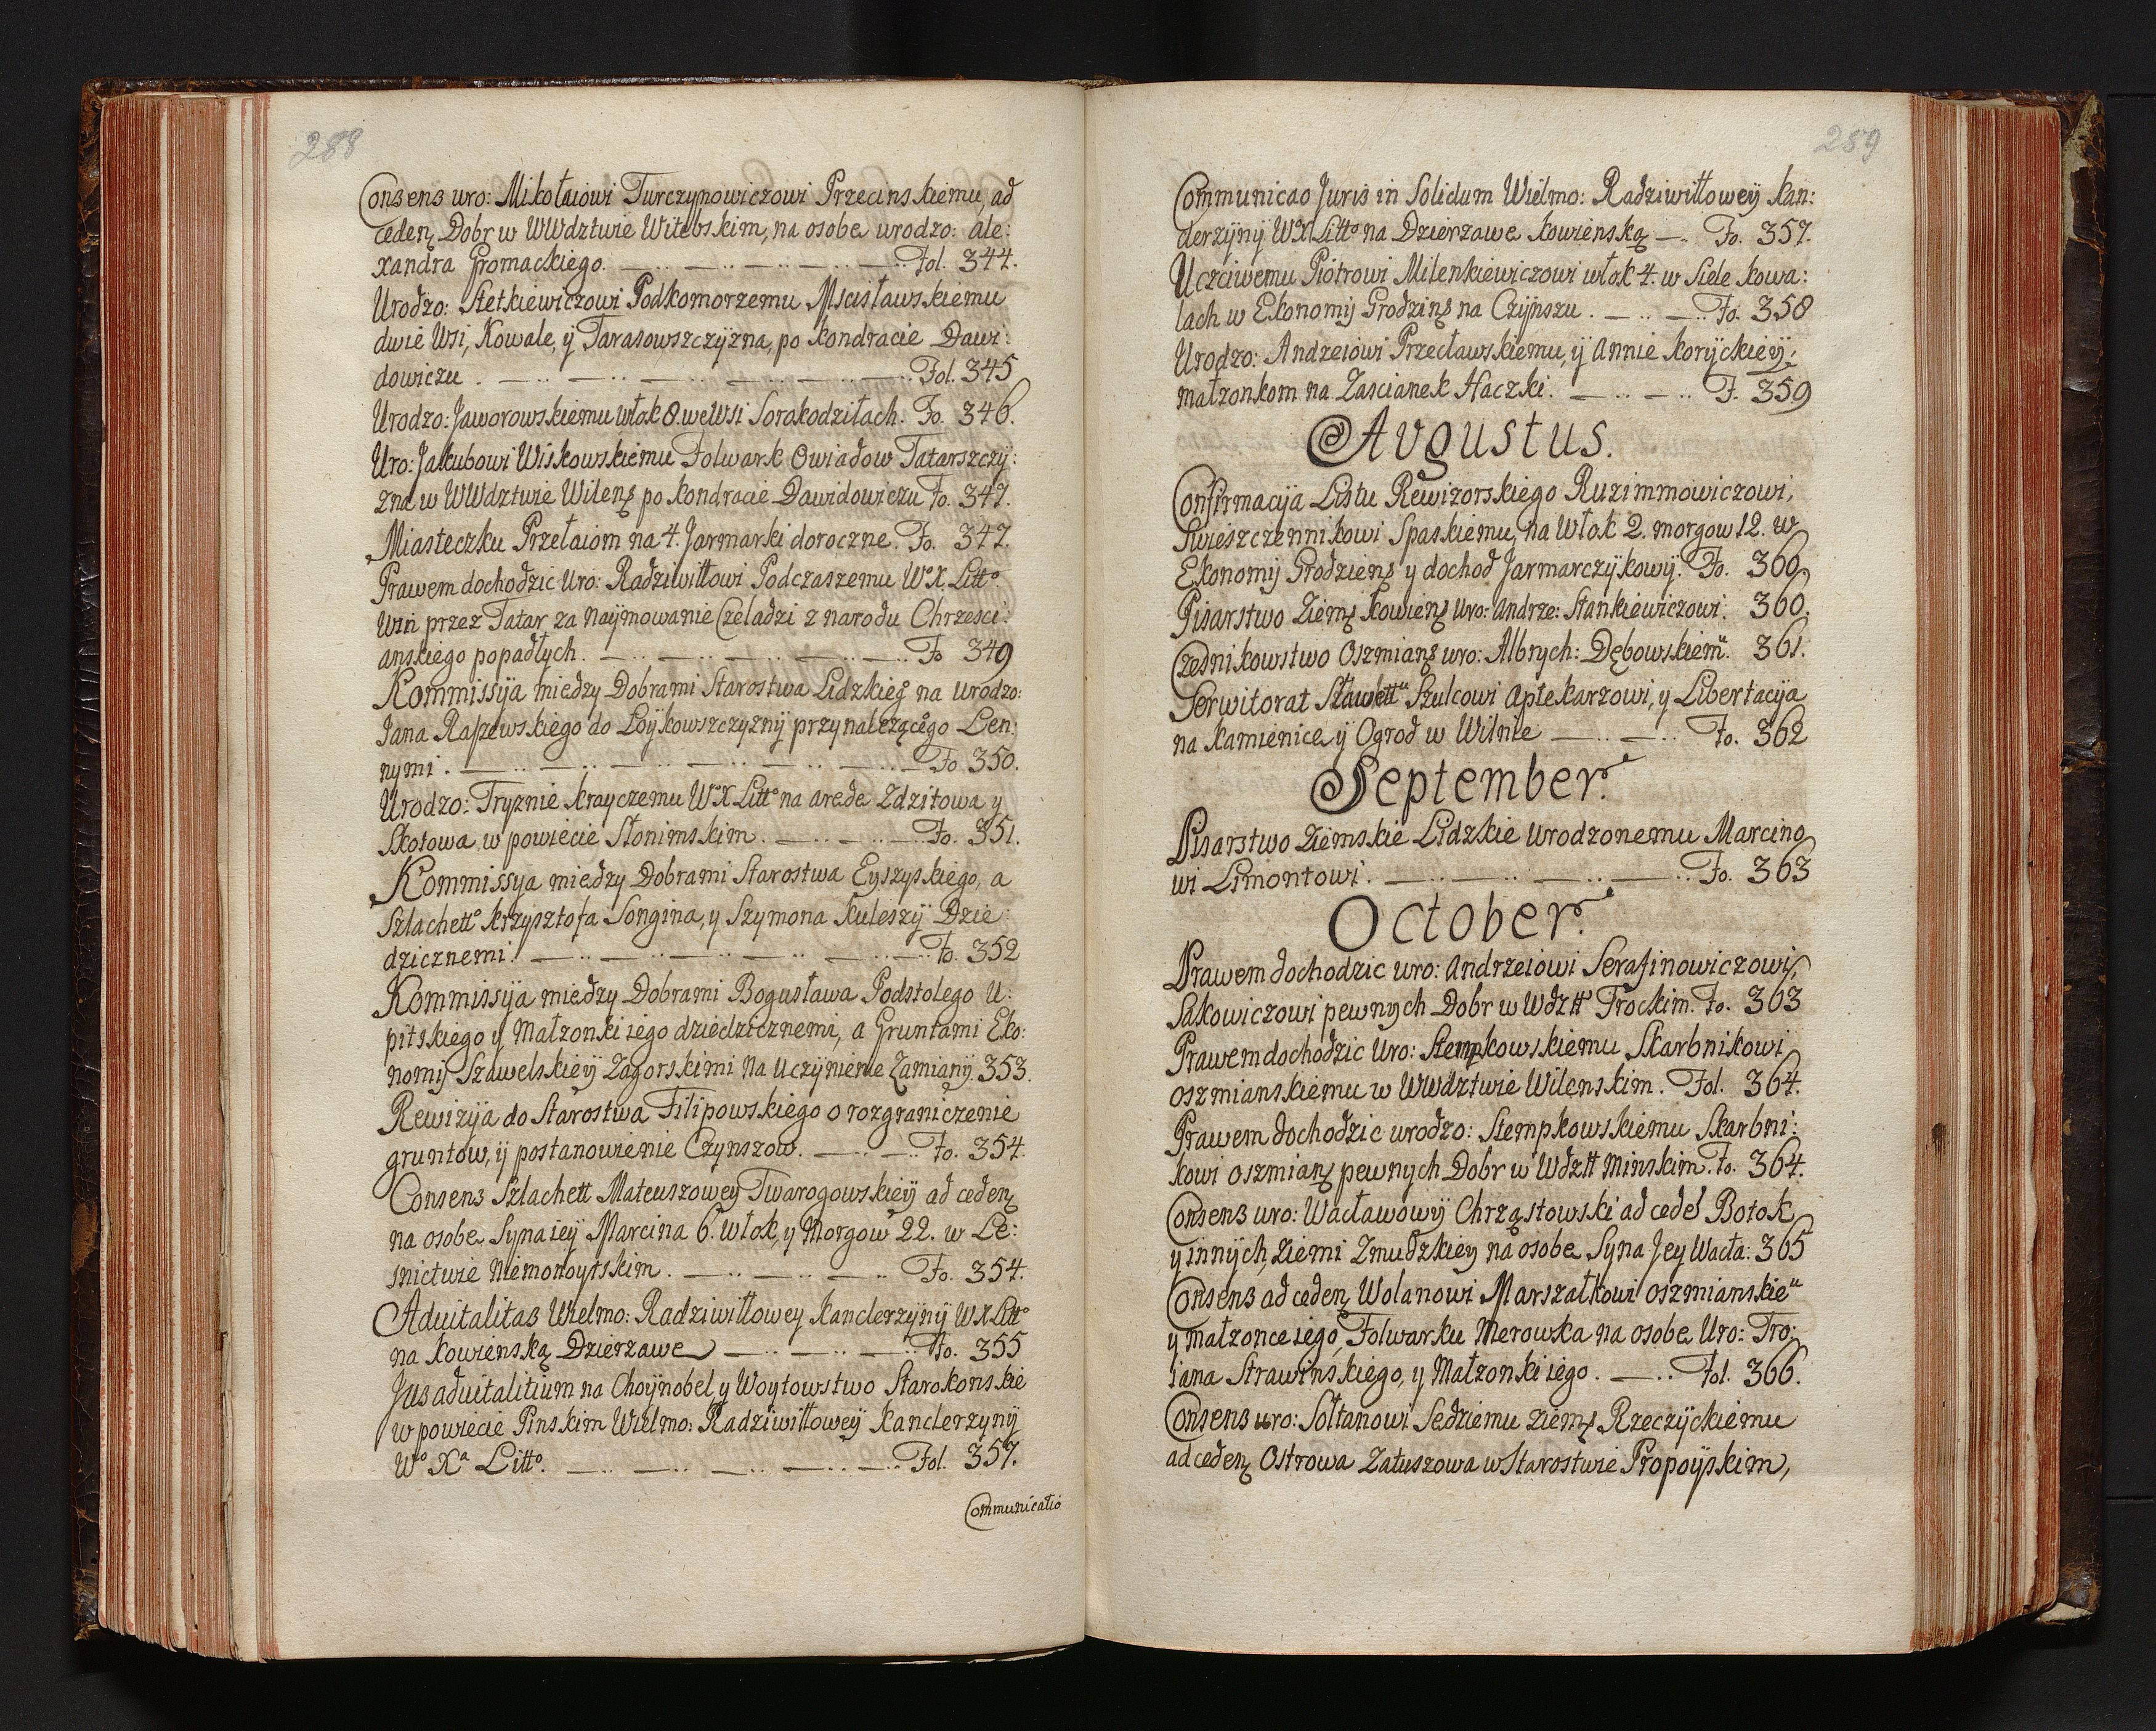 288
Consens uro: Mikołaiowi Turczynowiczowi Przecinskiemu, ad
cedenȝ Dobr w WWdztwie Witebskim, na osobe urodzo: Ale:
xandra Gromackiego. — .. — .. — .. — .. — .. Fol. 344.
Urodzo: Stetkiewiczowi Podkomorzemu Mscisławskiemu
dwie Wsi, Kowale, ÿ Tarasowszczÿzna, po Kondracie Dawi:
dowiczu . — .. — .. — .. — .. — .. — .. Fol. 345
Urodzo: Jaworowskiemu włok 8. we Wsi Sorokodziłach. Fo. 346.
Uro: Jakubowi Wiskowskiemu Folwark Owiadow Tatarszczÿ:
zna w WWdztwie Wilenȝ po Kondracie Dawidowiczu Fo. 347.
Miasteczku Przełaiom na 4. Jarmarki doroczne. Fo. 347.
Prawem dochodzic Uro: Radziwiłłowi Podczaszemu Wo X. Litto.
Win przez Tatar za Naÿmowanie Czeladzi z narodu Chrzesci:
anskiego popadłych. — .. — .. — .. — .. — .. Fo 349
Kommissÿa miedzy Dobrami Starostwa Lidzkieg° na Urodzo:
Jana Rajewskiego do Loÿkowszczyznÿ przynalezącego Len:
nymi . — .. — .. — .. — .. — .. — .. Fo 350.
Urodzo: Tryznie Krayczemu Wo X Litto na arede Zdzitowa y
Skołowa, w powiecie Słonimskim. — .. — .. — Fo. 351.
Kommissya miedzy Dobrami Starostwa Eyszyskiego, a
Szlachett° Krzysztofa Songina, y Szymona Kuleszÿ Dzie:
dzicznemi. — .. — .. — .. — .. — .. Fo. 352
Kommissÿa miedzy Dobrami Bogusława Podstolego U:
pitskiego y Małzonki iego dziedzicznemi, a Gruntami Eko:
nomÿ Szawelskieÿ Zagorskimi na Uczynienie Zamianÿ. 353.
Rewizÿa do Starostwa Filipowskiego o rozgraniczenie
gruntow, ÿ postanowienie Czynszow. — .. — .. Fo. 354.
Consens Szlachett Mateuszowey Twarogowskieÿ ad cedenȝ
na osobe Syna iey Marcina 6. włok, y Morgow 22. w Le:
snictwie Niemonoytskim . — .. — .. — .. Fo. 354.
Aduitalitas Wielmo: Radziwiłłowey Kanclerzÿnÿ W X Litto
na Kowienską Dzierzawe — .. — .. — .. Fo. 355
Jus aduitalitium na Choÿnobel, y Woytowstwo Starokonskie
w powiecie Pinskim Wielmo: Radziwiłłoweÿ Kanclerzynÿ
Wo Xa Litto. — .. — .. — .. — .. — .. Fol. 357.
Communicatio
289
Communicao Juris in Solidum Wielmo: Radziwiłłoweÿ Kan:
derzÿnÿ W X Litto na Dzierzawe Kowienską — .. Fo. 357.
Uczciwemu Piotrowi Milenkiewiczowi włok 4. w Siele Kowa:
lach w Ekonomÿ Grodzinȝ na Czÿnszu . — .. — .. Fo. 358
Urodzo: Andzeiowi Przecławskiemu, ÿ Annie Korÿckieÿ,
małzonkom na Zascianek Haczki. — .. — .. F. 359
Avgustus.
Confirmacÿa Listu Rewizorskiego Ruzimmowiczowi,
Swieszczennikowi Spaskiemu, na Włok 2. morgow 12. w
Ekonomÿ Grodzienȝ y dochod Jarmarczÿkowÿ. Fo. 360
Pisarstwo Ziemȝ Kowienȝ Uro: Andrze: Stankiewiczowi. 360.
Czesnikowstwo Oszmianȝ uro: Albrych: Dębowskiemu. 361.
Serwitorat Sławettu Szulcowi Aptekarzowi, y Libertacÿa
na Kamienice ÿ Ogrod w Wilnie — .. — .. Fo. 362
September.
Pisarstwo Ziemskie Lidzkie Urodzonemu Marcino
wi Limontowi. — .. — .. — .. — .. Fo. 363
October.
Prawem dochodzic uro: Andrzeiowi Serafinowiczowi,
Sakowiczowi pewnych Dobr w Wdztt Trockim. Fo. 363
Prawem dochodzic Uro: Stempkowskiemu Skarbnikowi
oszmianskiemu w WWdztwie Wilenskim. Fol. 364.
Prawem dochodzic urodzo: Stempkowskiemu Skarbni:
kowi oszmianȝ pewnych Dobr w Wdztt Minskim. Fo. 364.
Consens uro: Wacławowÿ Chrząstowski ad cedeˢ Botok
y innÿch, Ziemi Zmudzkiey na osobe Syna Jey Wacła: 365
Consens ad cedenȝ Wolanowi Marszałkowi oszmianskieu
y małzonce iego, Folwarku Merowska na osobe Uro: Tro:
iana Strawinskiego, y Małzonki iego . — .. Fol. 366.
Consens uro: Sołtanowi Sedziemu Ziemȝ Rzeczÿckiemu
ad cedenȝ Ostrowa Zatuszowa w Starostwie Propoÿskim,